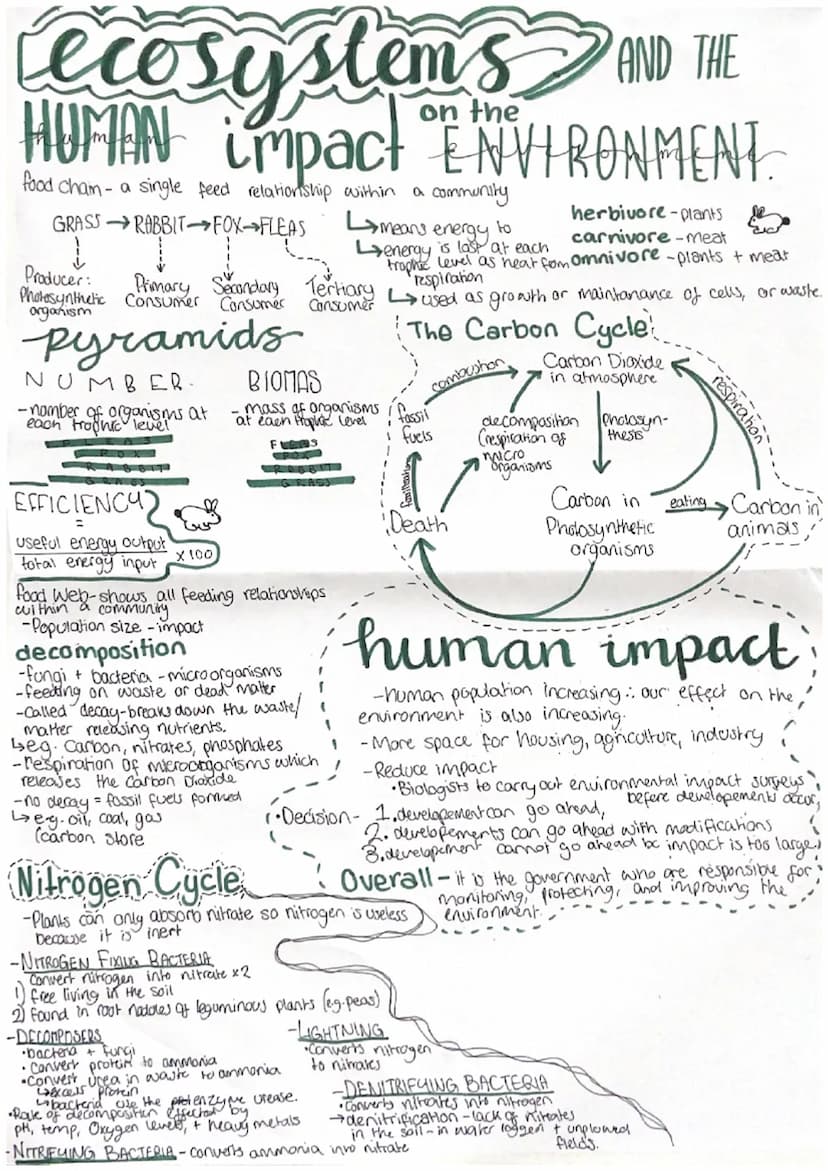 ecosystems AND THE
HUMAN impact on the ENVIRONMENT.
human environment
food chain - a single feed relationship within a community
GRASS → RABBIT → FOX → FLEAS
Producer:
Photosynthetic
organism
Primary
Consumer
Secondary
Consumer
Tertiary
Consumer
↳ means energy to
↳ energy is lost at each
trophic level as heat from
respiration
↳ used as growth or maintanance of cells, or waste.
herbivore - plants
carnivore - meat
omnivore - plants + meat
pyramids
NUMBER
- number of organisms at
each trophic level
FLEAS
FOX
RABBIT
GRASS
BIOMAS
- mass of organisms
at each trophic level
FLEAS
FOX
RABBIT
GRASS
EFFICIENCY
=
useful energy output
total energy input
x 100
The Carbon Cycle
combustion
Carbon Dioxide
in atmosphere
respiration
fossil
fuels
decomposition
(respiration of
micro
organisms
Photosyn-
thesis
fossilisation
Death
Carbon in
Photosynthetic
organisms
eating
Carbon in
animals
Food Web - shows all feeding relationships
within a community
- Population size - impact
decomposition
- fungi + bacteria - microorganisms
- feeding on waste or dead matter
- Called decay - breaks down the waste/
matter releasing nutrients.
↳ e.g. Carbon, nitrates, phosphates
- respiration of microorganisms which
releases the Carbon Dioxide
- no decay = fossil fuels formed
↳ e.g. oil, coal, gas
(carbon store
human impact
- human population increasing ∴ our effect on the
environment is also increasing.
- More space for housing, agriculture, industry
- Reduce impact
• Biologists to carry out environmental impact surveys
before developements occur,
• Decision - 1. developement can go ahead,
2. developements can go ahead with modifications
3. developement cannot go ahead bc impact is too large
Overall - it is the government who are responsible for
monitoring, protecting, and improving the
environment.
Nitrogen Cycle
- Plants can only absorb nitrate so nitrogen is useless
because it is inert
- NITROGEN FIXING BACTERIA
Convert nitrogen into nitrate x2
1) free living in the soil
2) Found in root nodules of leguminous plants (eg. peas)
- DECOMPOSERS
• bacteria + fungi
• Convert protein to ammonia
• Convert urea in waste to ammonia
↳ excess protein
↳ bacteria use the enzyme urease.
• Rate of decomposition effected by
pH, temp, Oxygen level, + heavy metals
- NITRIFYING BACTERIA - converts ammonia into nitrate
- LIGHTNING
• Converts nitrogen
to nitrates
- DENITRIFYING BACTERIA
• converts nitrates into nitrogen
→ denitrification - lack of nitrates
in the soil - in water logged + unplowed
fields.